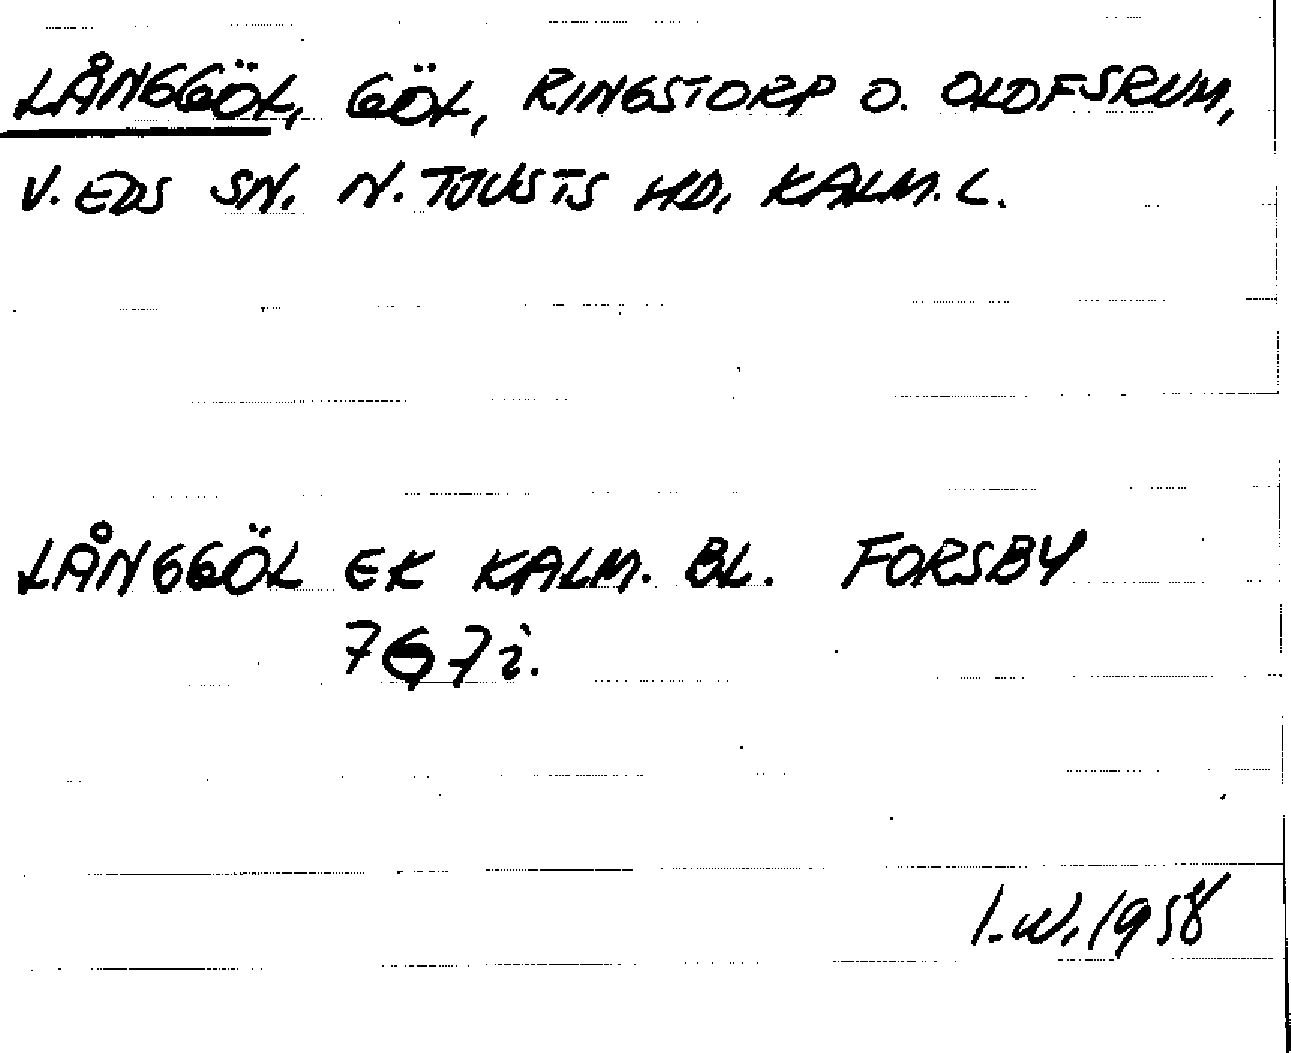 LÅNGGÖL, GÖL, RINGSTORP O. OLOFSRUM,
V. EDS SN. N. TJUSTS HD, KALM. L.
LÅNGGÖL EK KALM. BL. FORSBY
767 i.
I.W. 1958